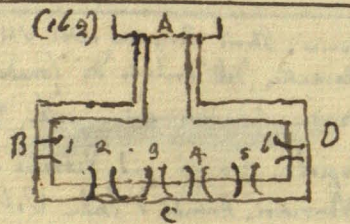 (162)
A
B 1 2 3 4 5 6 D
C